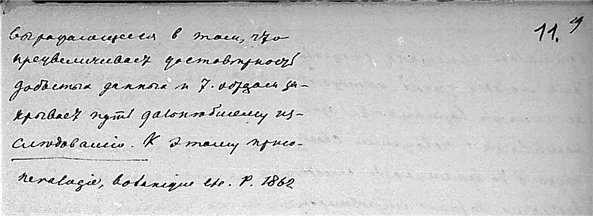 выражающееся в томъ, что
преувеличиваетъ достовѣрность
добытыхъ данныхъ и т. образомъ за-
крываетъ путь дальнѣйшему из-
слѣдованію. Къ этому присо-
neralogie, botanique etc. P. 1862
11.